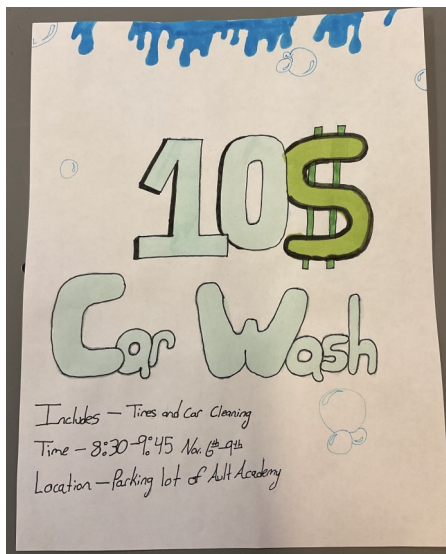 10$
Car Wash
Includes – Tires and Car Cleaning
Time – 8:30-9:45 Nov. 6th-9th
Location – Parking lot of Ault Academy